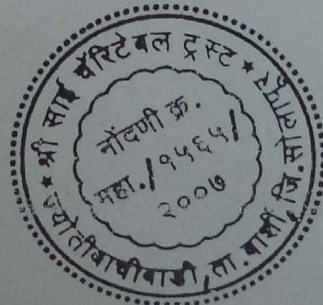 * श्री साई चॅरिटेबल ट्रस्ट *
ज्योतीबाचीवाडी, ता बार्शी, जि. सोलापूर
नोंदणी क्र.
महा./१५६५/
२००७